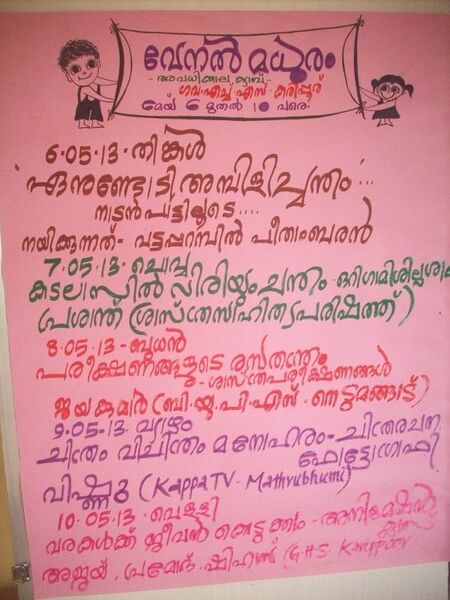 വേനൽ മധുരം
- അവധിക്കാല ക്യാമ്പ് -
ഗവ.എച്ച്.എസ്. കരിപ്പൂര്
മേയ് 6 മുതൽ 10 വരെ.
6.05.13 - തിങ്കൾ
ഏനുണ്ടോടി അമ്പിളിച്ചന്തം ...
നാടൻപാട്ടിലൂടെ ....
നയിക്കുന്നത് - വട്ടപ്പറമ്പിൽ പീതാംബരൻ
7.05.13 - ചൊവ്വ
കടലാസിൽ വിരിയും ചന്തം - ഒറിഗാമിശില്പശാല
പ്രശാന്ത് (ശാസ്ത്രസാഹിത്യപരിഷത്ത്)
8.05.13 - ബുധൻ
പരീക്ഷണങ്ങളുടെ രസതന്ത്രം
- ശാസ്ത്രപരീക്ഷണങ്ങൾ
ജയകുമാർ (ബി.യു.പി.എസ്. നെടുമങ്ങാട്)
9.05.13. വ്യാഴം
ചിത്രം വിചിത്രം മനോഹരം - ചിത്രരചന
ഫോട്ടോഗ്രാഫി
വിഷ്ണു (Kappa TV - Mathrubhumi)
10.05.13 - വെള്ളി
വരകൾക്ക് ജീവൻ കൊടുക്കാം - അനിമേഷൻ
അജയ്, പ്രമോദ്, ഷിഹാസ് (G.H.S. Karippoor)